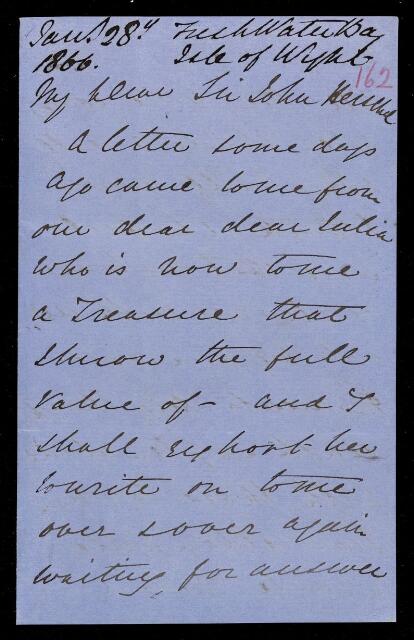 Jan. 28th Fresh Water Bay
1866. Isle of Wight
162
My dear Sir John Herschel
A letter some days
ago came to me from
our dear dear Julia
who is now to me
a Treasure that
I know the full
value of - and I
shall exhort her
to write on to me
over & over again
waiting for answer